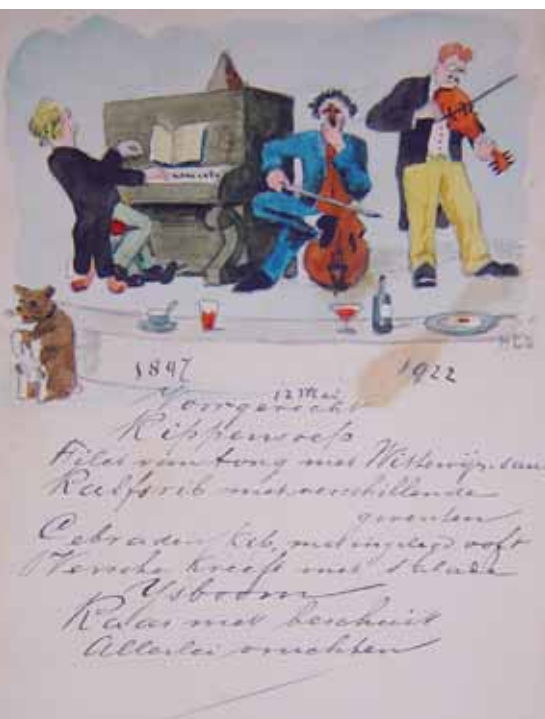 1897 1922
12 Mei
Voorgerecht
Kippensoep
Filet van tong met Wittewijn-sau
Kalfsrib met verschillende
groenten
Gebraden kip, met ingelegd ooft
Versche kreeft met Salade
Ysboom
Kaas met beschuit
Allerlei vruchten